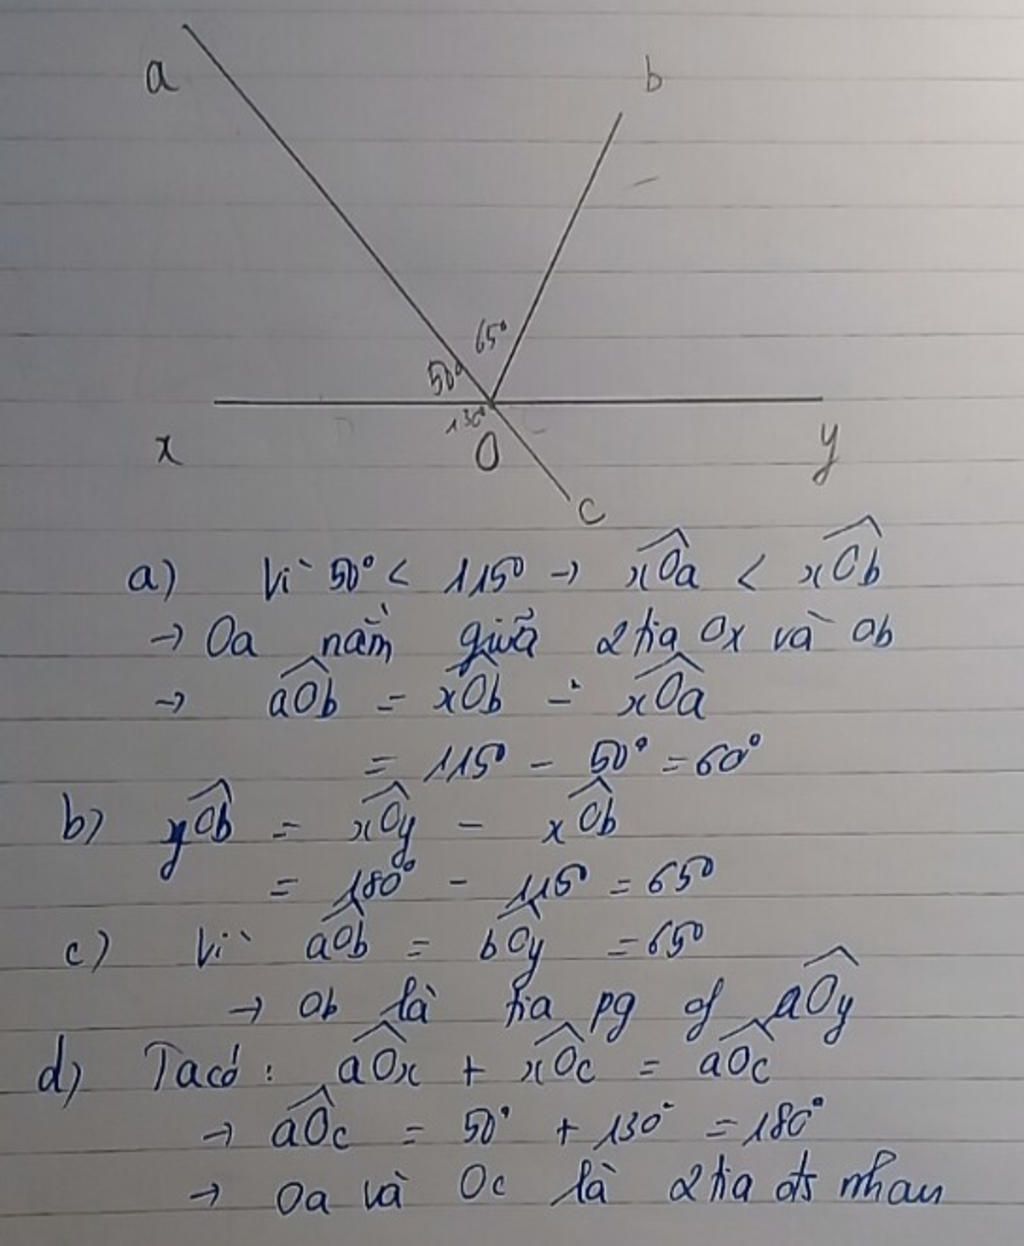 a
b
65°
50°
130°
x
O
y
c
a) Vì 50° < 115° → xOa < xOb
→ Oa nằm giữa 2 tia Ox và Ob
→ aOb = xOb - xOa
= 115° - 50° = 60°
b) yOb = xOy - xOb
= 180° - 115° = 65°
c) Vì aOb = bOy = 65°
→ Ob là tia pg of aOy
d) Ta có: aOx + xOc = aOc
→ aOc = 50° + 130° = 180°
→ Oa và Oc là 2 tia đs nhau